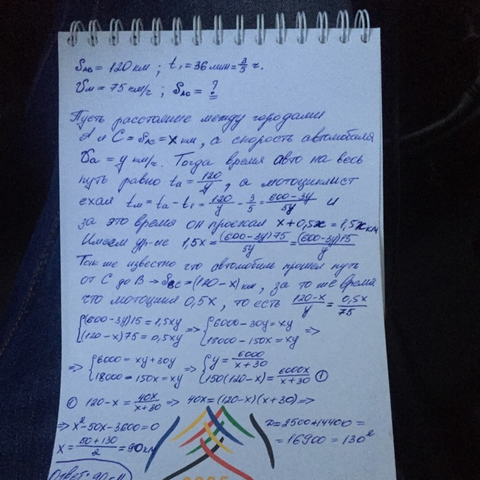 S_AB = 120 км ; t₁ = 36 мин = 3/5 ч.
V_м = 75 км/ч ; S_AC = ?
Пусть расстояние между городами
А и С = S_AC = x км, а скорость автомобиля
V_a = y км/ч. Тогда время авто на весь
путь равно t_a = 120/y, а мотоциклист
ехал t_м = t_a - t₁ = 120/y - 3/5 = (600-3y)/5y и
за это время он проехал x + 0,5x = 1,5x км
Имеем ур-не 1,5x = (600-3y)75/5y = (600-3y)15/y
Так же известно что автомобиль прошел путь
от С до В → S_BC = (120-x) км, за то же время
что мотоцикл 0,5x, то есть (120-x)/y = 0,5x/75
{(600-3y)15 = 1,5xy {6000-30y = xy
{(120-x)75 = 0,5xy ⇒ {18000-150x = xy ⇒
⇒ {6000 = xy+30y ⇒ {y = 6000/(x+30)
{18000 = 150x + xy {150(120-x) = 6000x/(x+30) ①
① 120-x = 40x/(x+30) ⇒ 40x = (120-x)(x+30) ⇒
⇒ x²-50x-3600=0 = 2500+14400 =
x = (50+130)/2 = 90 км = 16900 = 130²
Ответ: 90 км